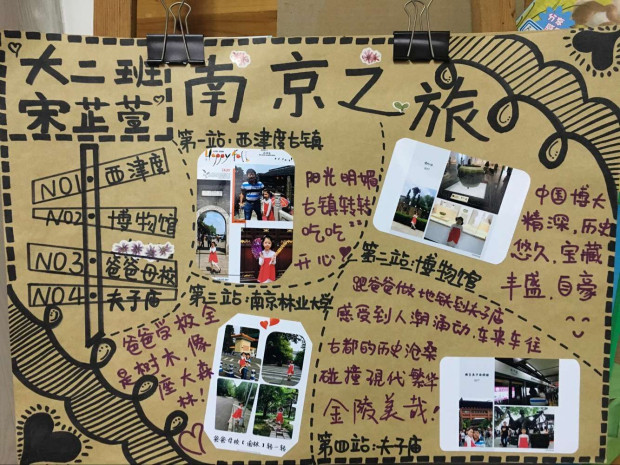 大二班
宋芷萱
南京之旅
NO1 西津度
NO2 博物馆
NO3 爸爸母校
NO4 夫子庙
第一站·西津度古镇
阳光明媚
古镇转转
吃吃
开心
第二站:博物馆
中国博大
精深,历史
悠久,宝藏
丰盛,自豪
第三站:南京林业大学
爸爸母校全
是树木,像
座大森
林!
爸爸母校(南林)转一转
跟爸爸做地铁到夫子庙
感受到人潮涌动,车来车往
古都的历史沧桑
碰撞现代繁华
金陵美哉!
第四站:夫子庙